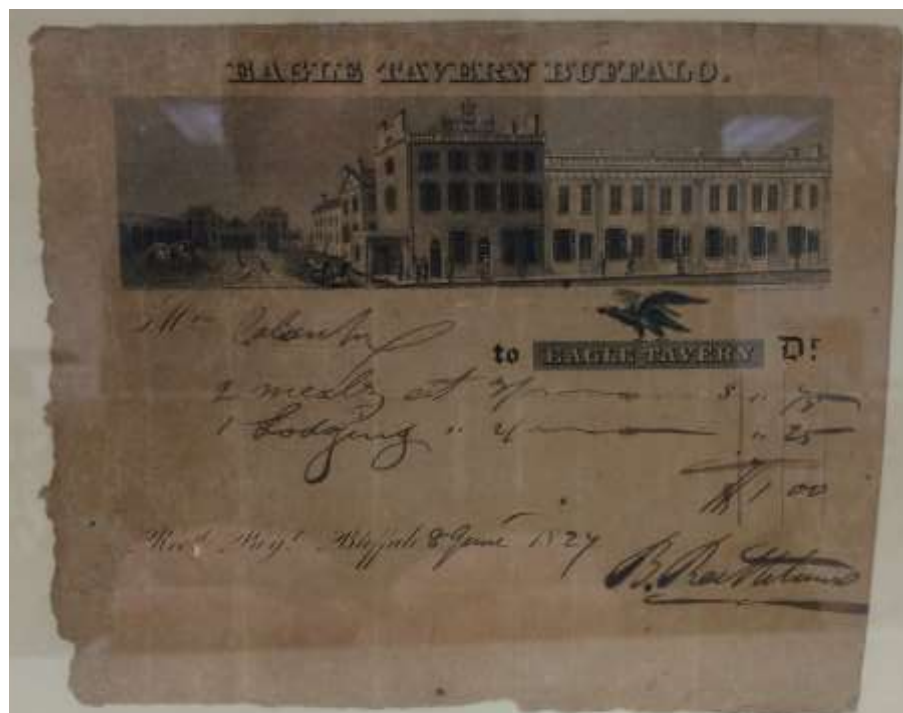 EAGLE TAVERN BUFFALO.
Mr
to EAGLE TAVERN Dr
2 meals at 3/ $ " 75
1 Lodging " 2/ " 25
$ 1 00
Recd Payt Buffalo 8 June 1827
B.